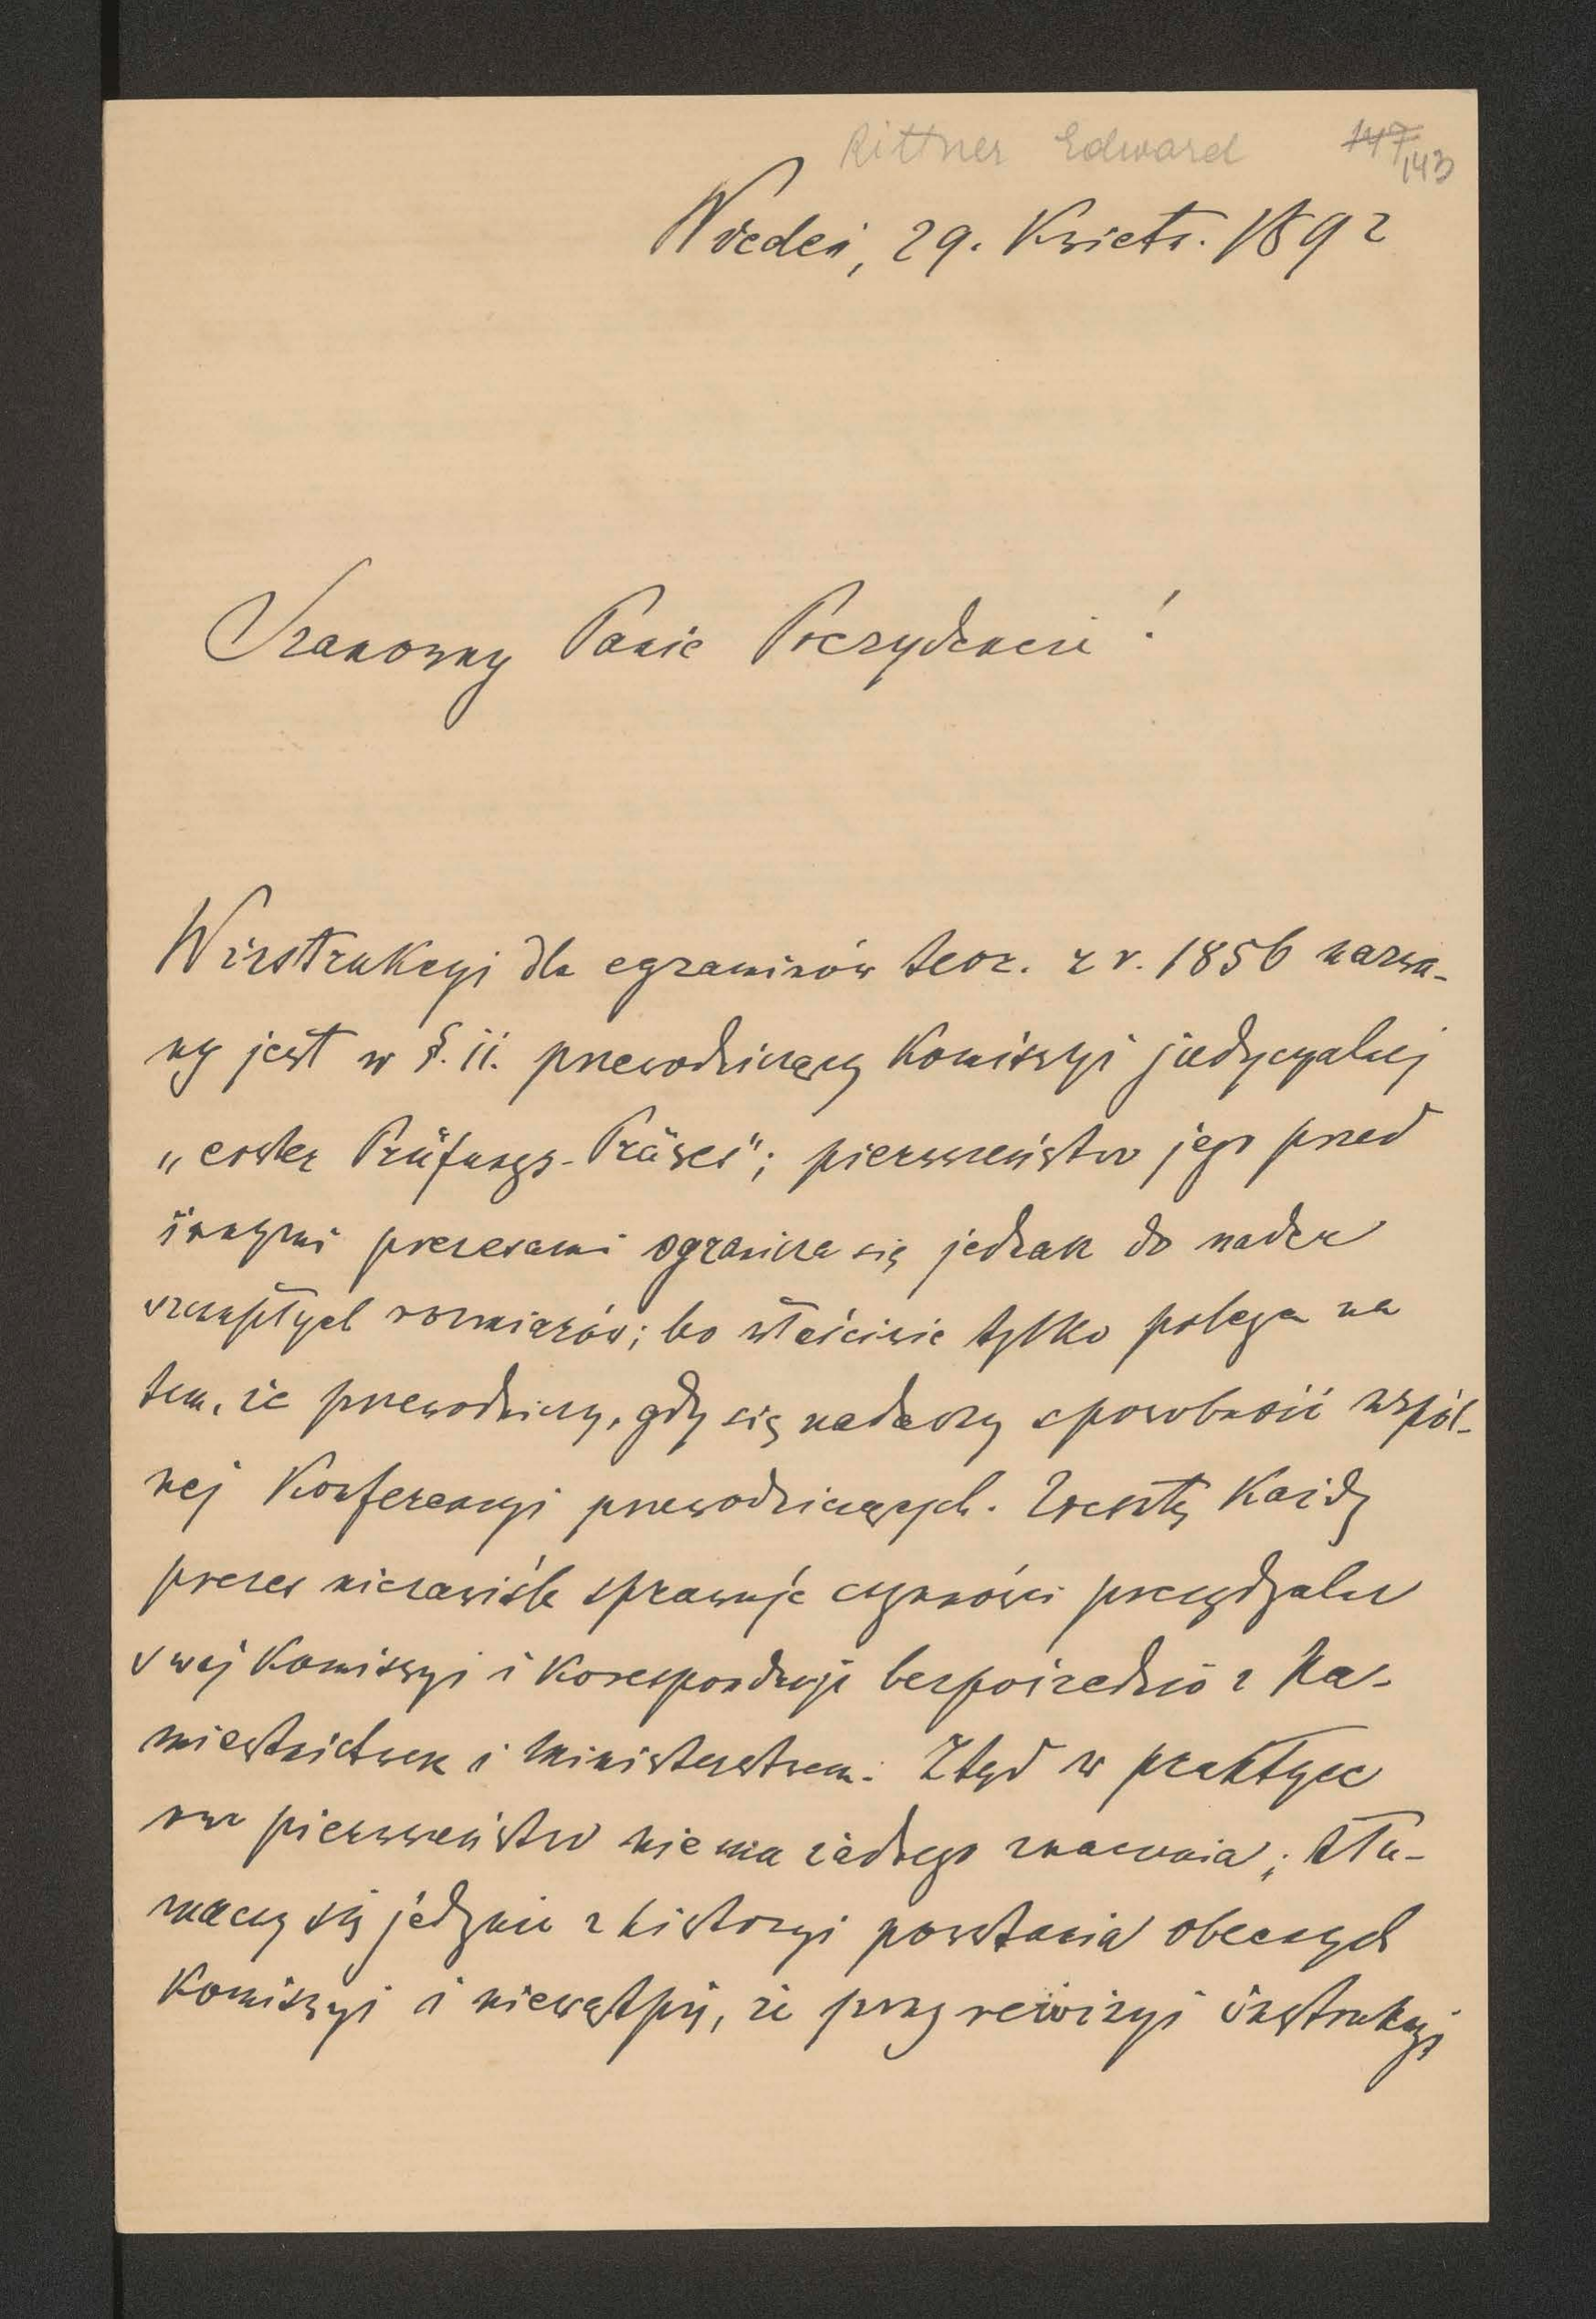 Rittner Edward 147
143
Wiedeń, 29. Kwietn. 1892
Szanowny Panie Prezydencie!
W instrukcyi dla egzaminów teor. z r. 1856 nazwa-
ny jest w §. 11. przewodniczący Komissyi judycyalnej
„erster Prüfungs-Präses"; pierwszeństwo jego przed
innymi prezesami ogranicza się jednak do nader
szczupłych rozmiarów; bo właściwie tylko polega na
tem, że przewodniczy, gdy się nadarzy sposobność wspól-
nej Konferencyi przewodniczących. Zresztą Każdy
prezes niezawiśle sprawuje czynności prezydyalne
swej Komissyi i Koresponduje bezpośrednio z Na-
miestnictwem i Ministerstwem. Ztąd w praktyce
owo pierwszeństwo nie ma żadnego znaczenia; tłu-
maczy się jedynie z historyi powstania obecnych
Komissyi i niewątpię, że przy rewizyi instrukcyi